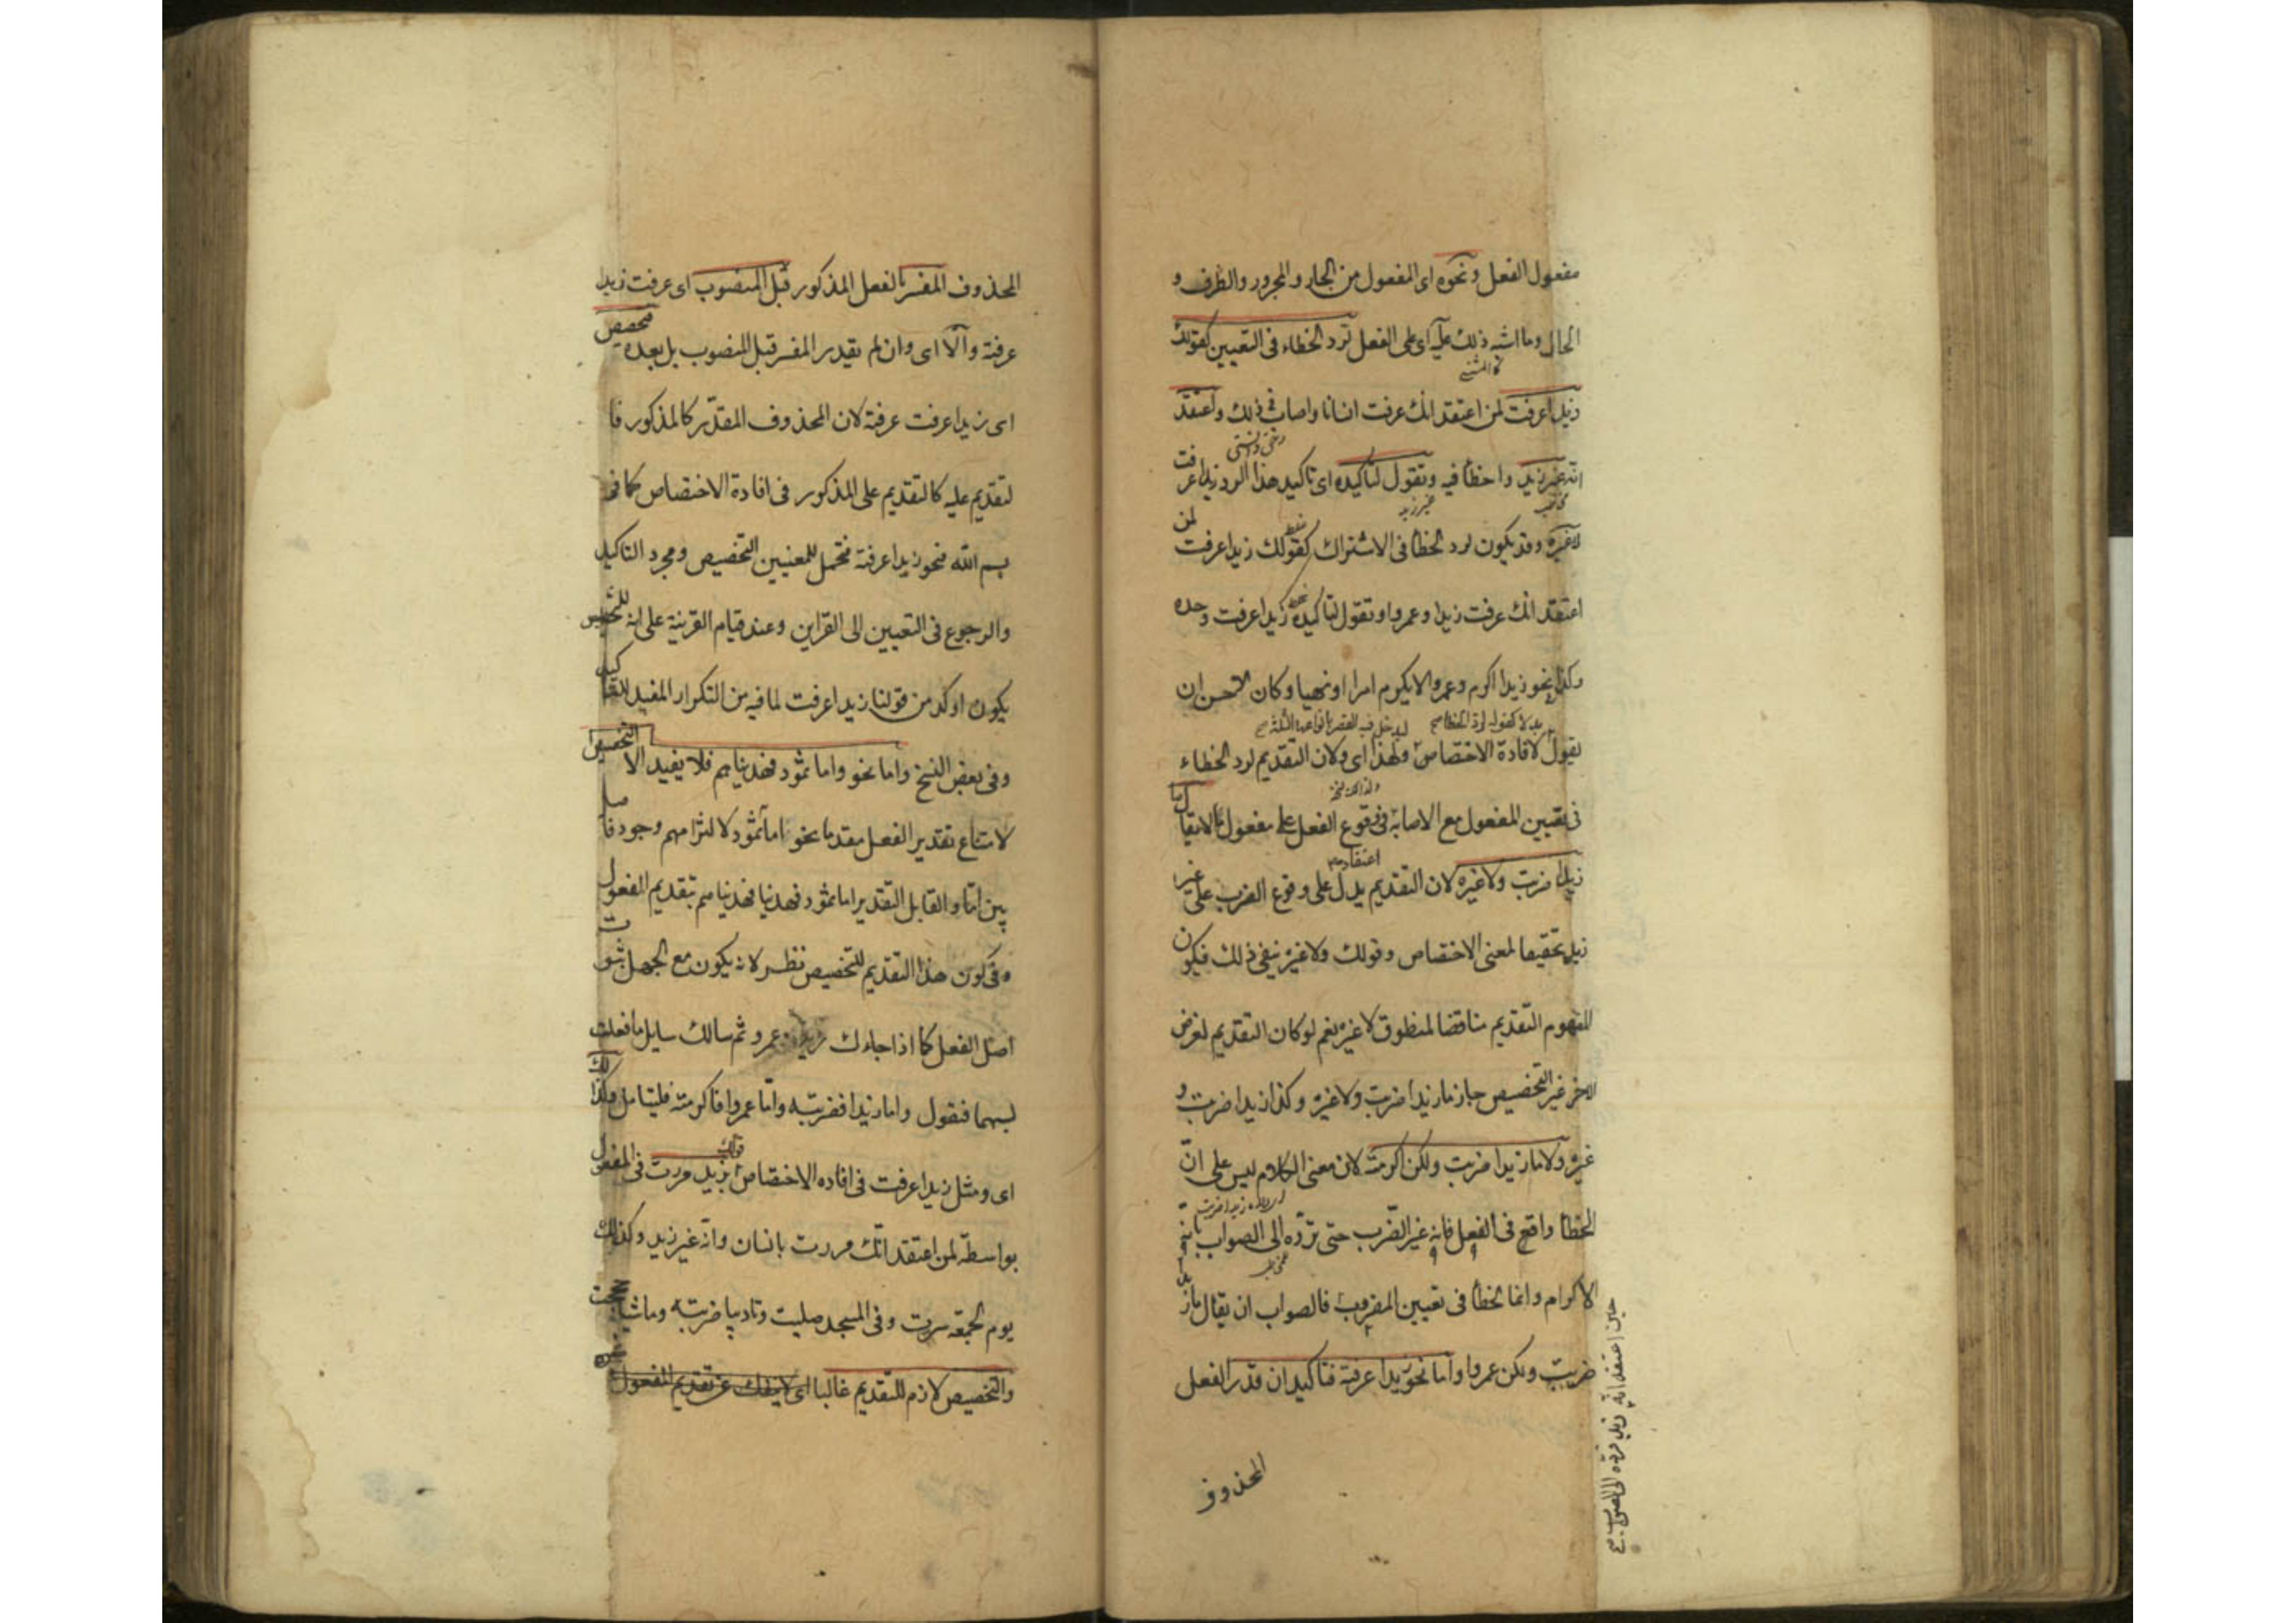 مفعول الفعل ونحوه اى المفعول من الجار والمجرور والظرف و
الحال وما اشبه ذلك عليه اى على الفعل لرد الخطاء فى التعيين كقولك
زيدا عرفت لمن اعتقد انك عرفت انسانا واصاب فى ذلك واعتقد
انه غير زيد واخطأ فيه وتقول لتاكيده اى تاكيد هذا الرد زيدا عرفت
لا غيره وقد يكون لرد الخطأ فى الاشتراك كقولك زيدا عرفت لمن
اعتقد انك عرفت زيدا وعمروا وتقول لتاكيده زيدا عرفت وحده
وكذا نحو زيدا اكرم وعمروا لا تكرم امرا او نهيا وكان الاحسن ان
يقول لافادة الاختصاص ولهذا اى ولان التقديم لرد الخطاء
فى تعيين المفعول مع الاصابة فى وقوع الفعل على مفعول ما لا يقال ما
زيدا ضربت ولا غيره لان التقديم يدل على وقوع الضرب على غير
زيد تحقيقا لمعنى الاختصاص وقولك ولا غيره ينفى ذلك فيكون
مفهوم التقديم مناقضا لمنطوق لا غيره نعم لو كان التقديم لغرض
اخر غير التخصيص جاز ما زيدا ضربت ولا غيره وكذا زيدا ضربت و
غيره ولا ما زيدا ضربت ولكن اكرمته لان معنى الكلام ليس على ان
الخطأ واقع فى الفعل فانه غير الضرب حتى ترده الى الصواب بانه
الاكرام وانما الخطأ فى تعيين المضروب فالصواب ان يقال ما زيدا
ضربت ولكن عمروا واما نحو زيدا عرفته فتاكيد ان قدر الفعل
المحذوف
حين اعتقد انه زيد فرده الى الصواب
المحذوف المفسر بالفعل المذكور قبل المنصوب اى عرفت زيدا
عرفته والا اى وان لم يقدر المفسر قبل المنصوب بل بعده فتخصيص
اى زيدا عرفت عرفته لان المحذوف المقدر كالمذكور فا
لتقديم عليه كالتقديم على المذكور فى افادة الاختصاص كما فى
بسم الله فنحو زيدا عرفته محتمل للمعنيين التخصيص ومجرد التاكيد
والرجوع فى التعيين الى القراين وعند قيام القرينة على انه للتخصيص
يكون اوكد من قولنا زيدا عرفت لما فيه من التكرار المفيد للتاكيد
وفى بعض النسخ واما نحو واما ثمود فهديناهم فلا يفيد الا التخصيص
لامتناع تقدير الفعل مقدما نحو اما ثمود لالتزامهم وجود فاصل
بين اما والفا بل التقدير اما ثمود فهدينا فهديناهم بتقديم المفعول
وفى كون هذا التقديم للتخصيص نظر لانه يكون مع الجهل بثبوت
اصل الفعل كما اذا جاءك زيد وعمرو ثم سالك سايل ما فعلت
بهما فتقول واما زيدا فضربته واما عمروا فاكرمته فليتامل وكذلك
اى ومثل زيدا عرفت فى افاده الاختصاص قولك بزيد مررت فى المفعول
بواسطة لمن اعتقد انك مررت بانسان وانه غير زيد وكذلك
يوم الجمعة سرت وفى المسجد صليت وتاديبا ضربته وماشيا حججت
والتخصيص لازم للتقديم غالبا اى لا ينفك عن تقديم المفعول